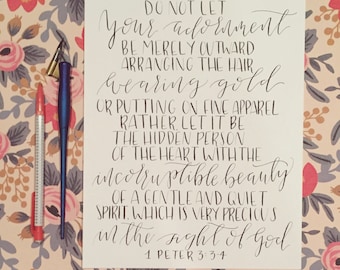 DO NOT LET
Your adornment
BE MERELY OUTWARD
ARRANGING THE HAIR
wearing gold
OR PUTTING ON FINE APPAREL
RATHER LET IT BE
THE HIDDEN PERSON
OF THE HEART WITH THE
incorruptible beauty
OF A GENTLE AND QUIET
SPIRIT, WHICH IS VERY PRECIOUS
in the sight of God
1 PETER 3:3-4